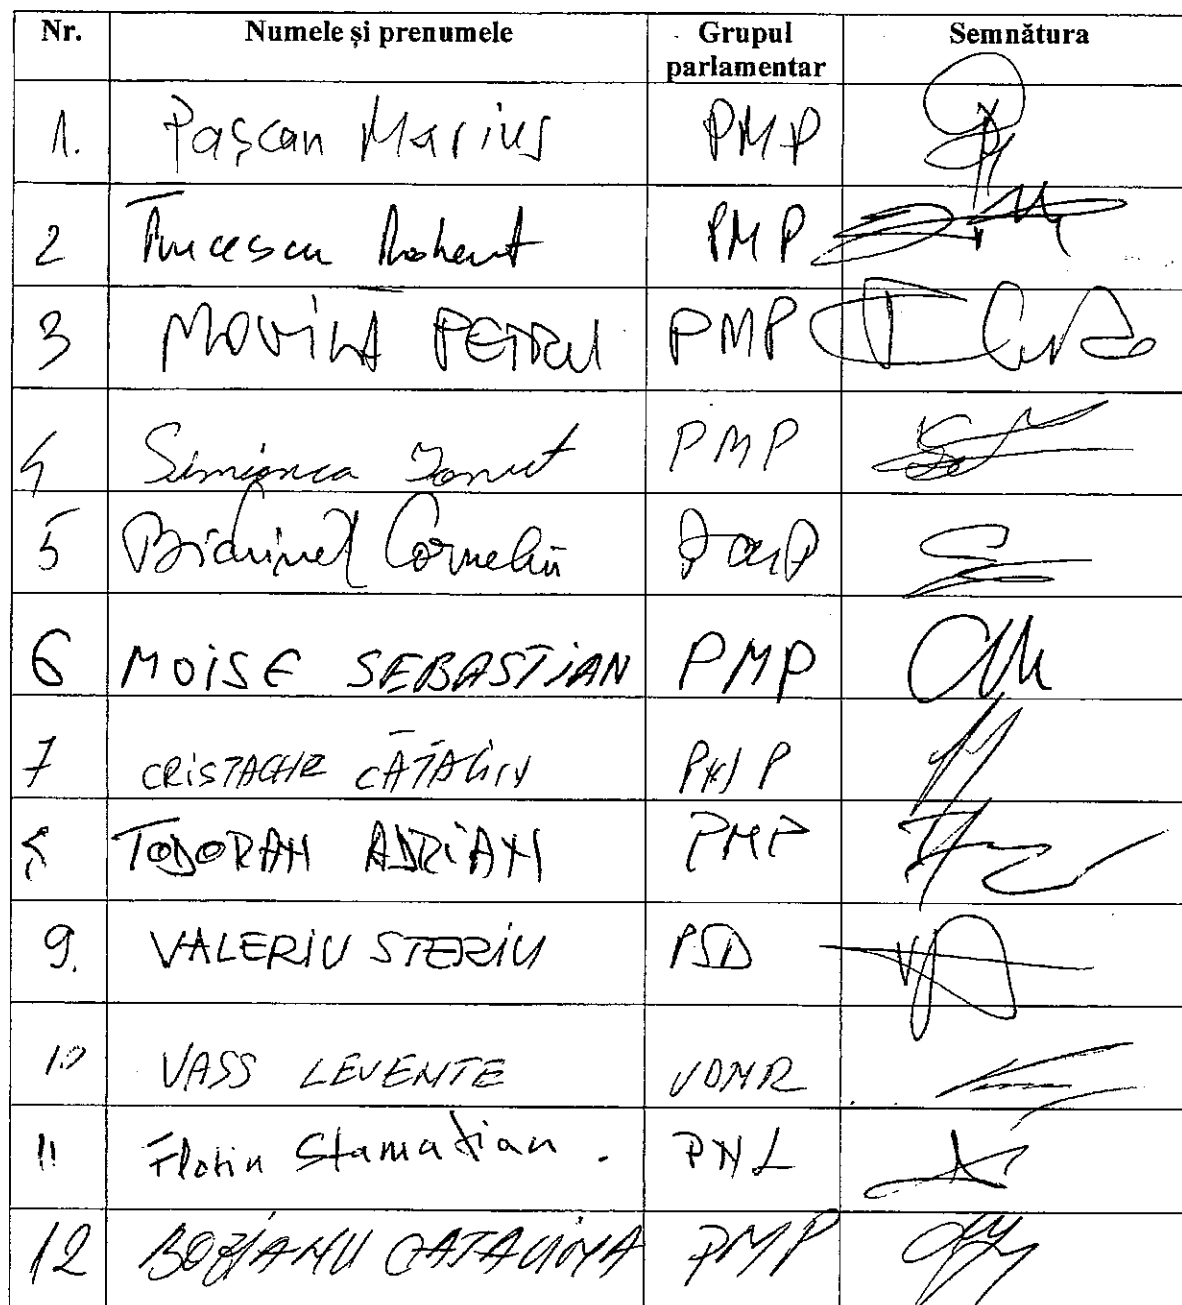 Nr. Numele și prenumele Grupul parlamentar Semnătura
1. Pașcan Marius PMP
2 Turcescu Robert PMP
3 MOVILĂ PETRU PMP
4 Simionca Ionut PMP
5 Bichineț Corneliu PMP
6 MOISE SEBASTIAN PMP
7 CRISTACHE CĂTĂLIN PMP
8 TODORAN ADRIAN PMP
9. VALERIU STERIU PSD
10 VASS LEVENTE UDMR
11 Florin Stamatian. PNL
12 BOZIANU CATALINA PMP